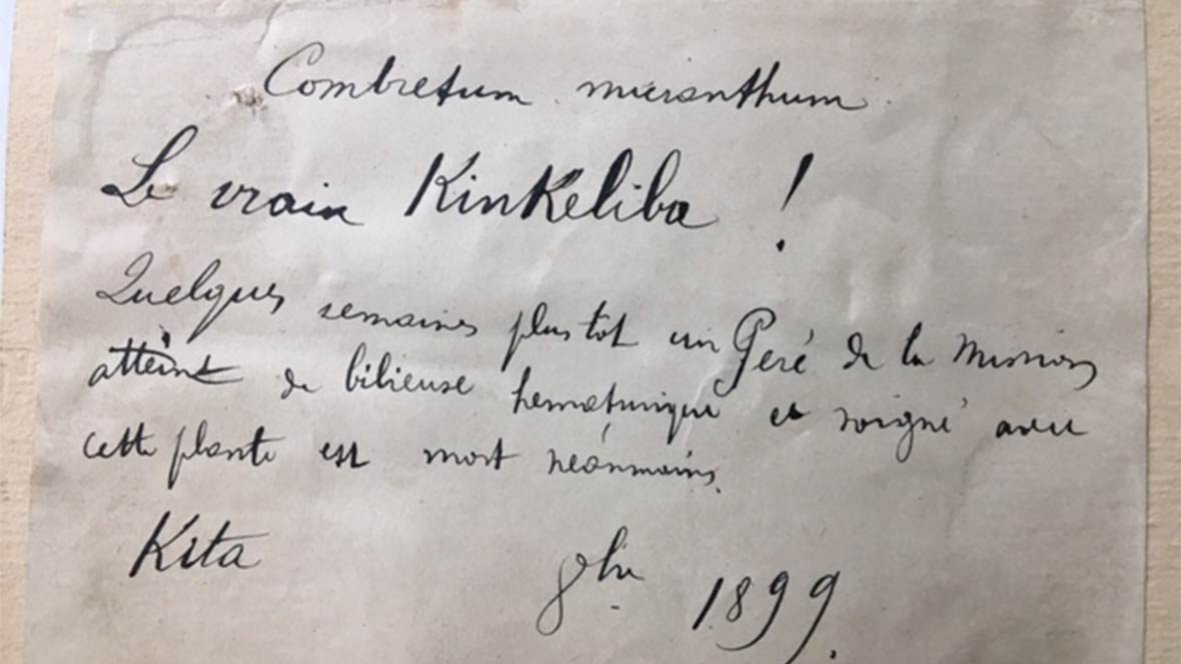 Combretum micranthum
Le vrain Kinkeliba !
Quelques semaines plus tôt un Peré de la Mission
atteint de bilieuse hematurique et soigné avec
cette plante est mort néanmoins.
Kita 8bre 1899.